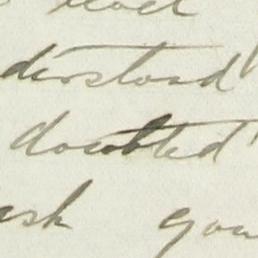 derstood
doubted
ask you